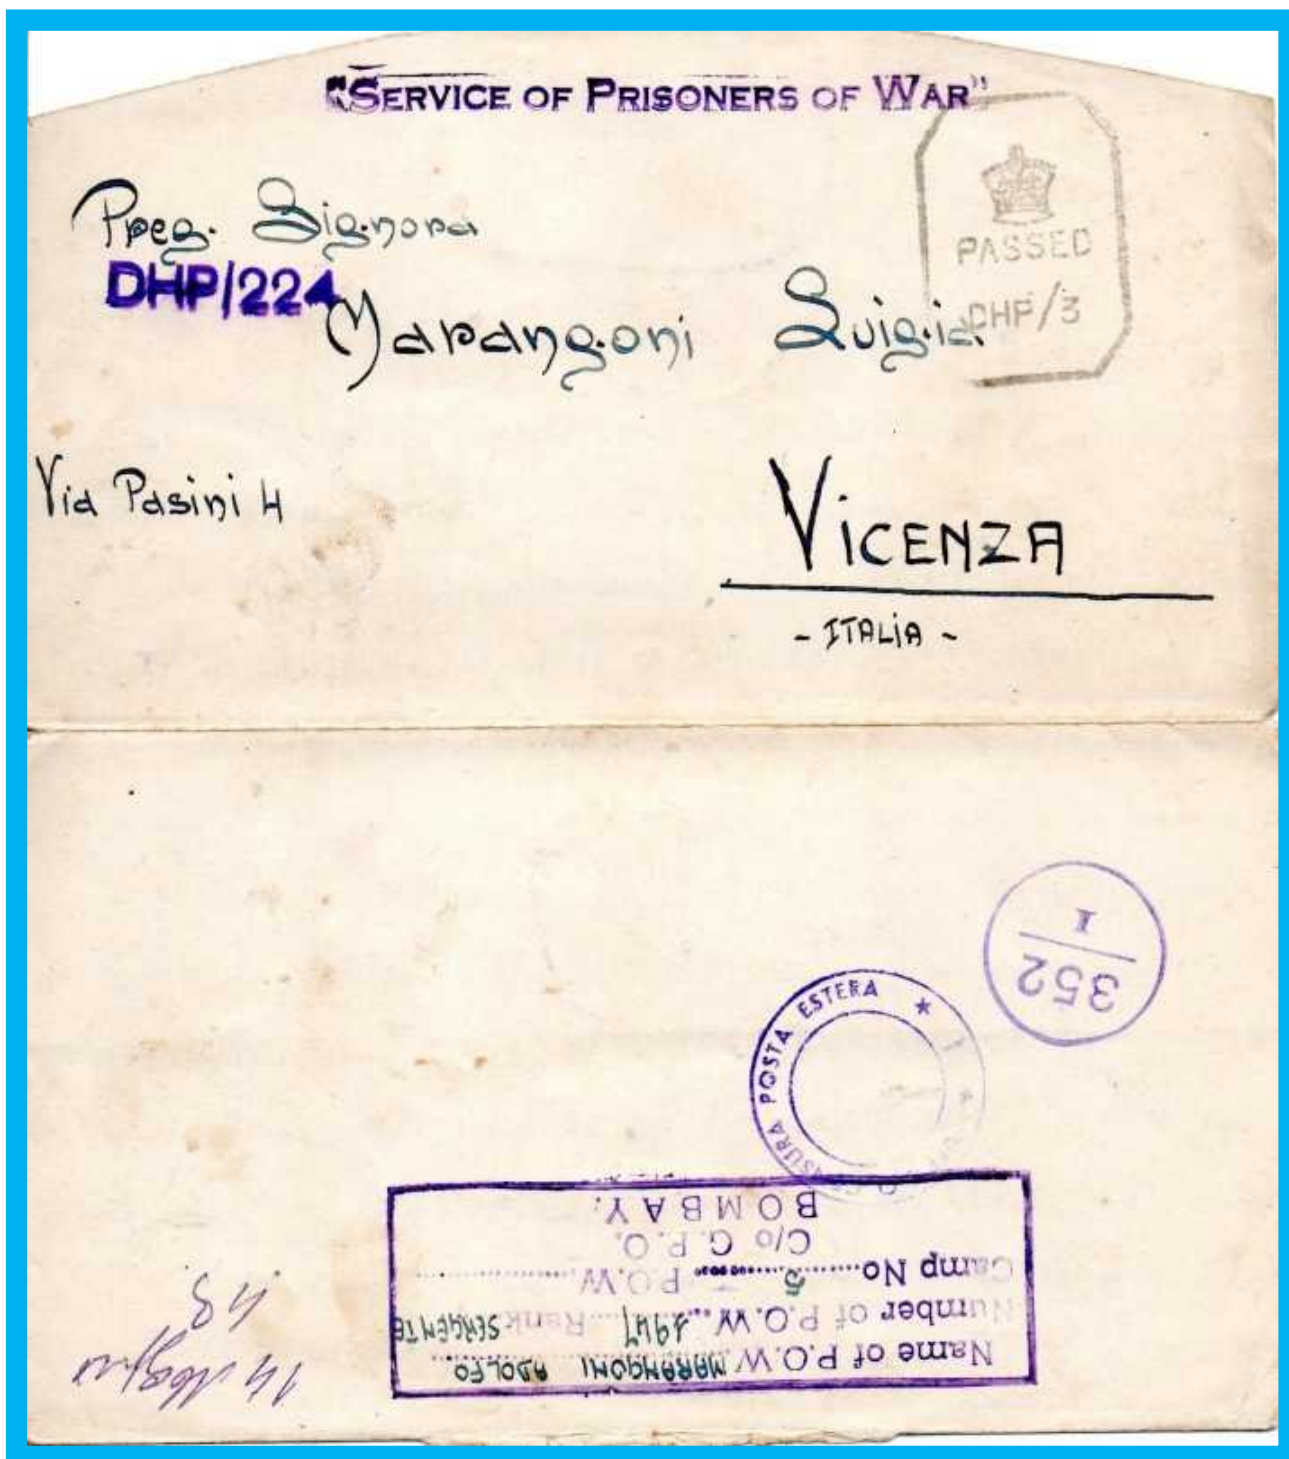 "SERVICE OF PRISONERS OF WAR"
PASSED
DHP/3
Preg. Signora
DHP/224
Marangoni Luigia
Via Pasini 4
VICENZA
- ITALIA -
352
I
CENSURA POSTA ESTERA
Name of P.O.W. MARANGONI ADOLFO
Number of P.O.W. 1947 Rank SERGENTE
Camp No. 5 P.O.W.
C/o G.P.O.
BOMBAY.